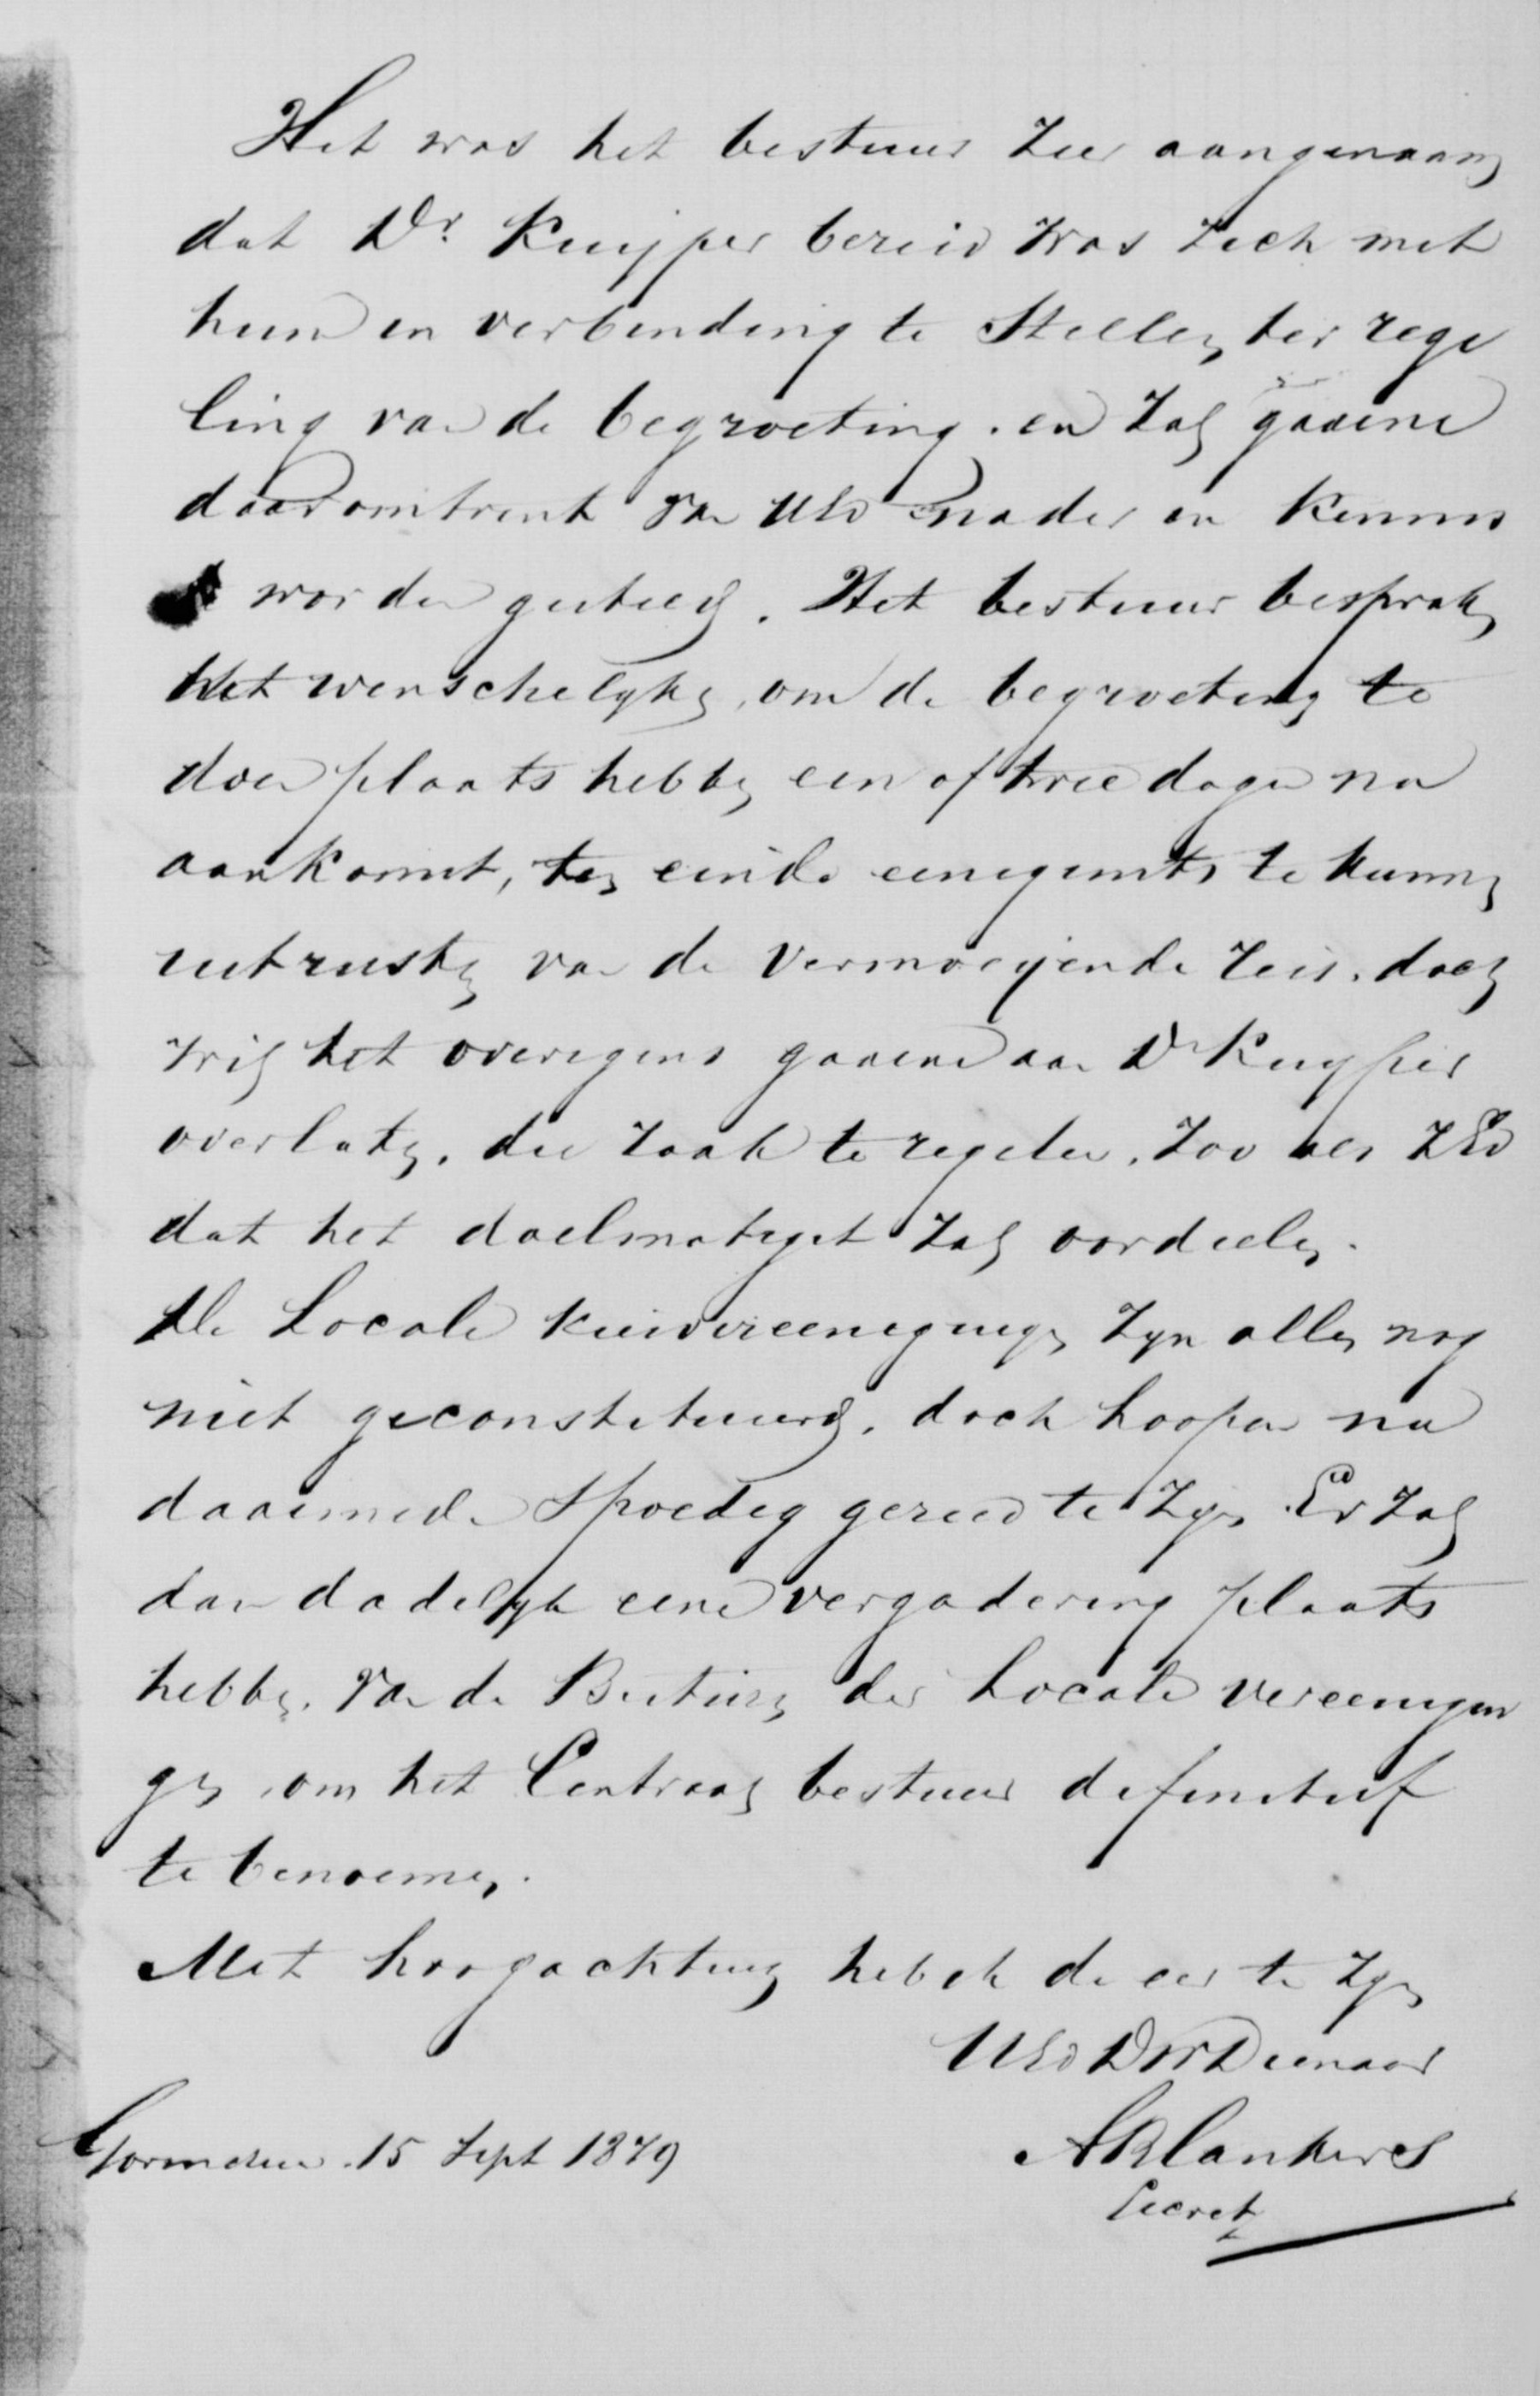 Het was het bestuur zeer aangenaam
dat Dr. Kuijper bereid was zich met
hun in verbinding te stellen, ter rege
ling van de begroeting. en zal gaarne
daaromtrent van UEd nader in kennis
worden gesteld. Het bestuur besprak
het wenschelyke, om de begroeting te
doen plaats hebben een of twee dagen na
aankomst, ten einde eenigzints te kunnen
uitrusten van de vermoeijende reis. doch
wil het overigens gaarne aan Dr Kuyper
overlaten. die zaak te regelen. zoo als ZEd
dat het doelmatigst zal oordeelen.
De Locale kiesvereenigingen zyn allen nog
niet geconstitueerd. doch hoopen nu
daarmede spoedig gereed te zyn. Er zal
dan dadelyk eene vergadering plaats
hebben. van de Besturen der Locale vereenigin
gen om het Centraal bestuur definitief
te benoemen.
Met hoogachting heb ik de eer te zyn
UEd DWDienaar
Gorinchem. 15 Sept 1879
ABlankers
Secret